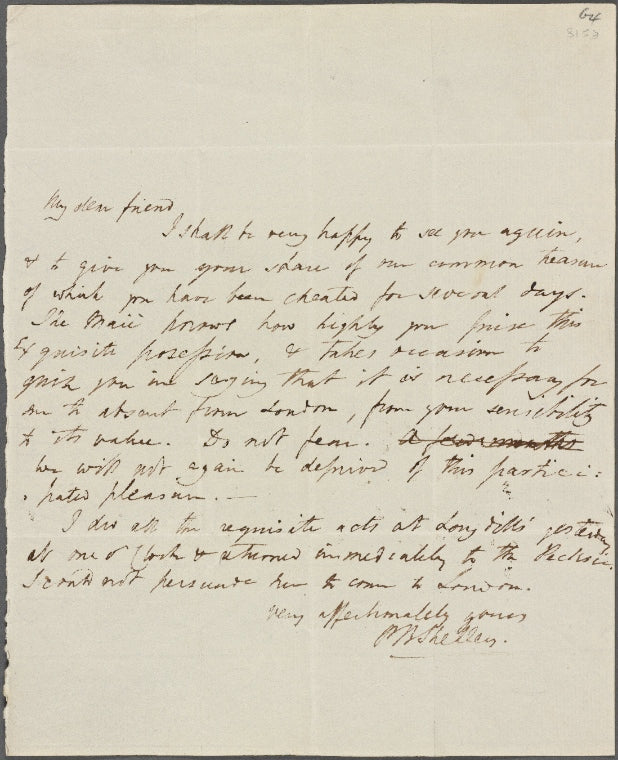 64
My dear friend
I shall be very happy to see you again,
& to give you your share of our common treasure
of which you have been cheated for several days.
The Maië knows how highly you prise this
exquisite possession, & takes occasion to
quiz you in saying that it is necessary for
me to absent from London, from your sensibility
to its value. Do not fear. A few months
we will not again be deprived of this partici:
pated pleasure. —
I did all the requisite acts at Longdill's yesterday
at one o'Clock & returned immediately to the
I could not persuade her to come to London.
very affectionately yours
PBShelley.